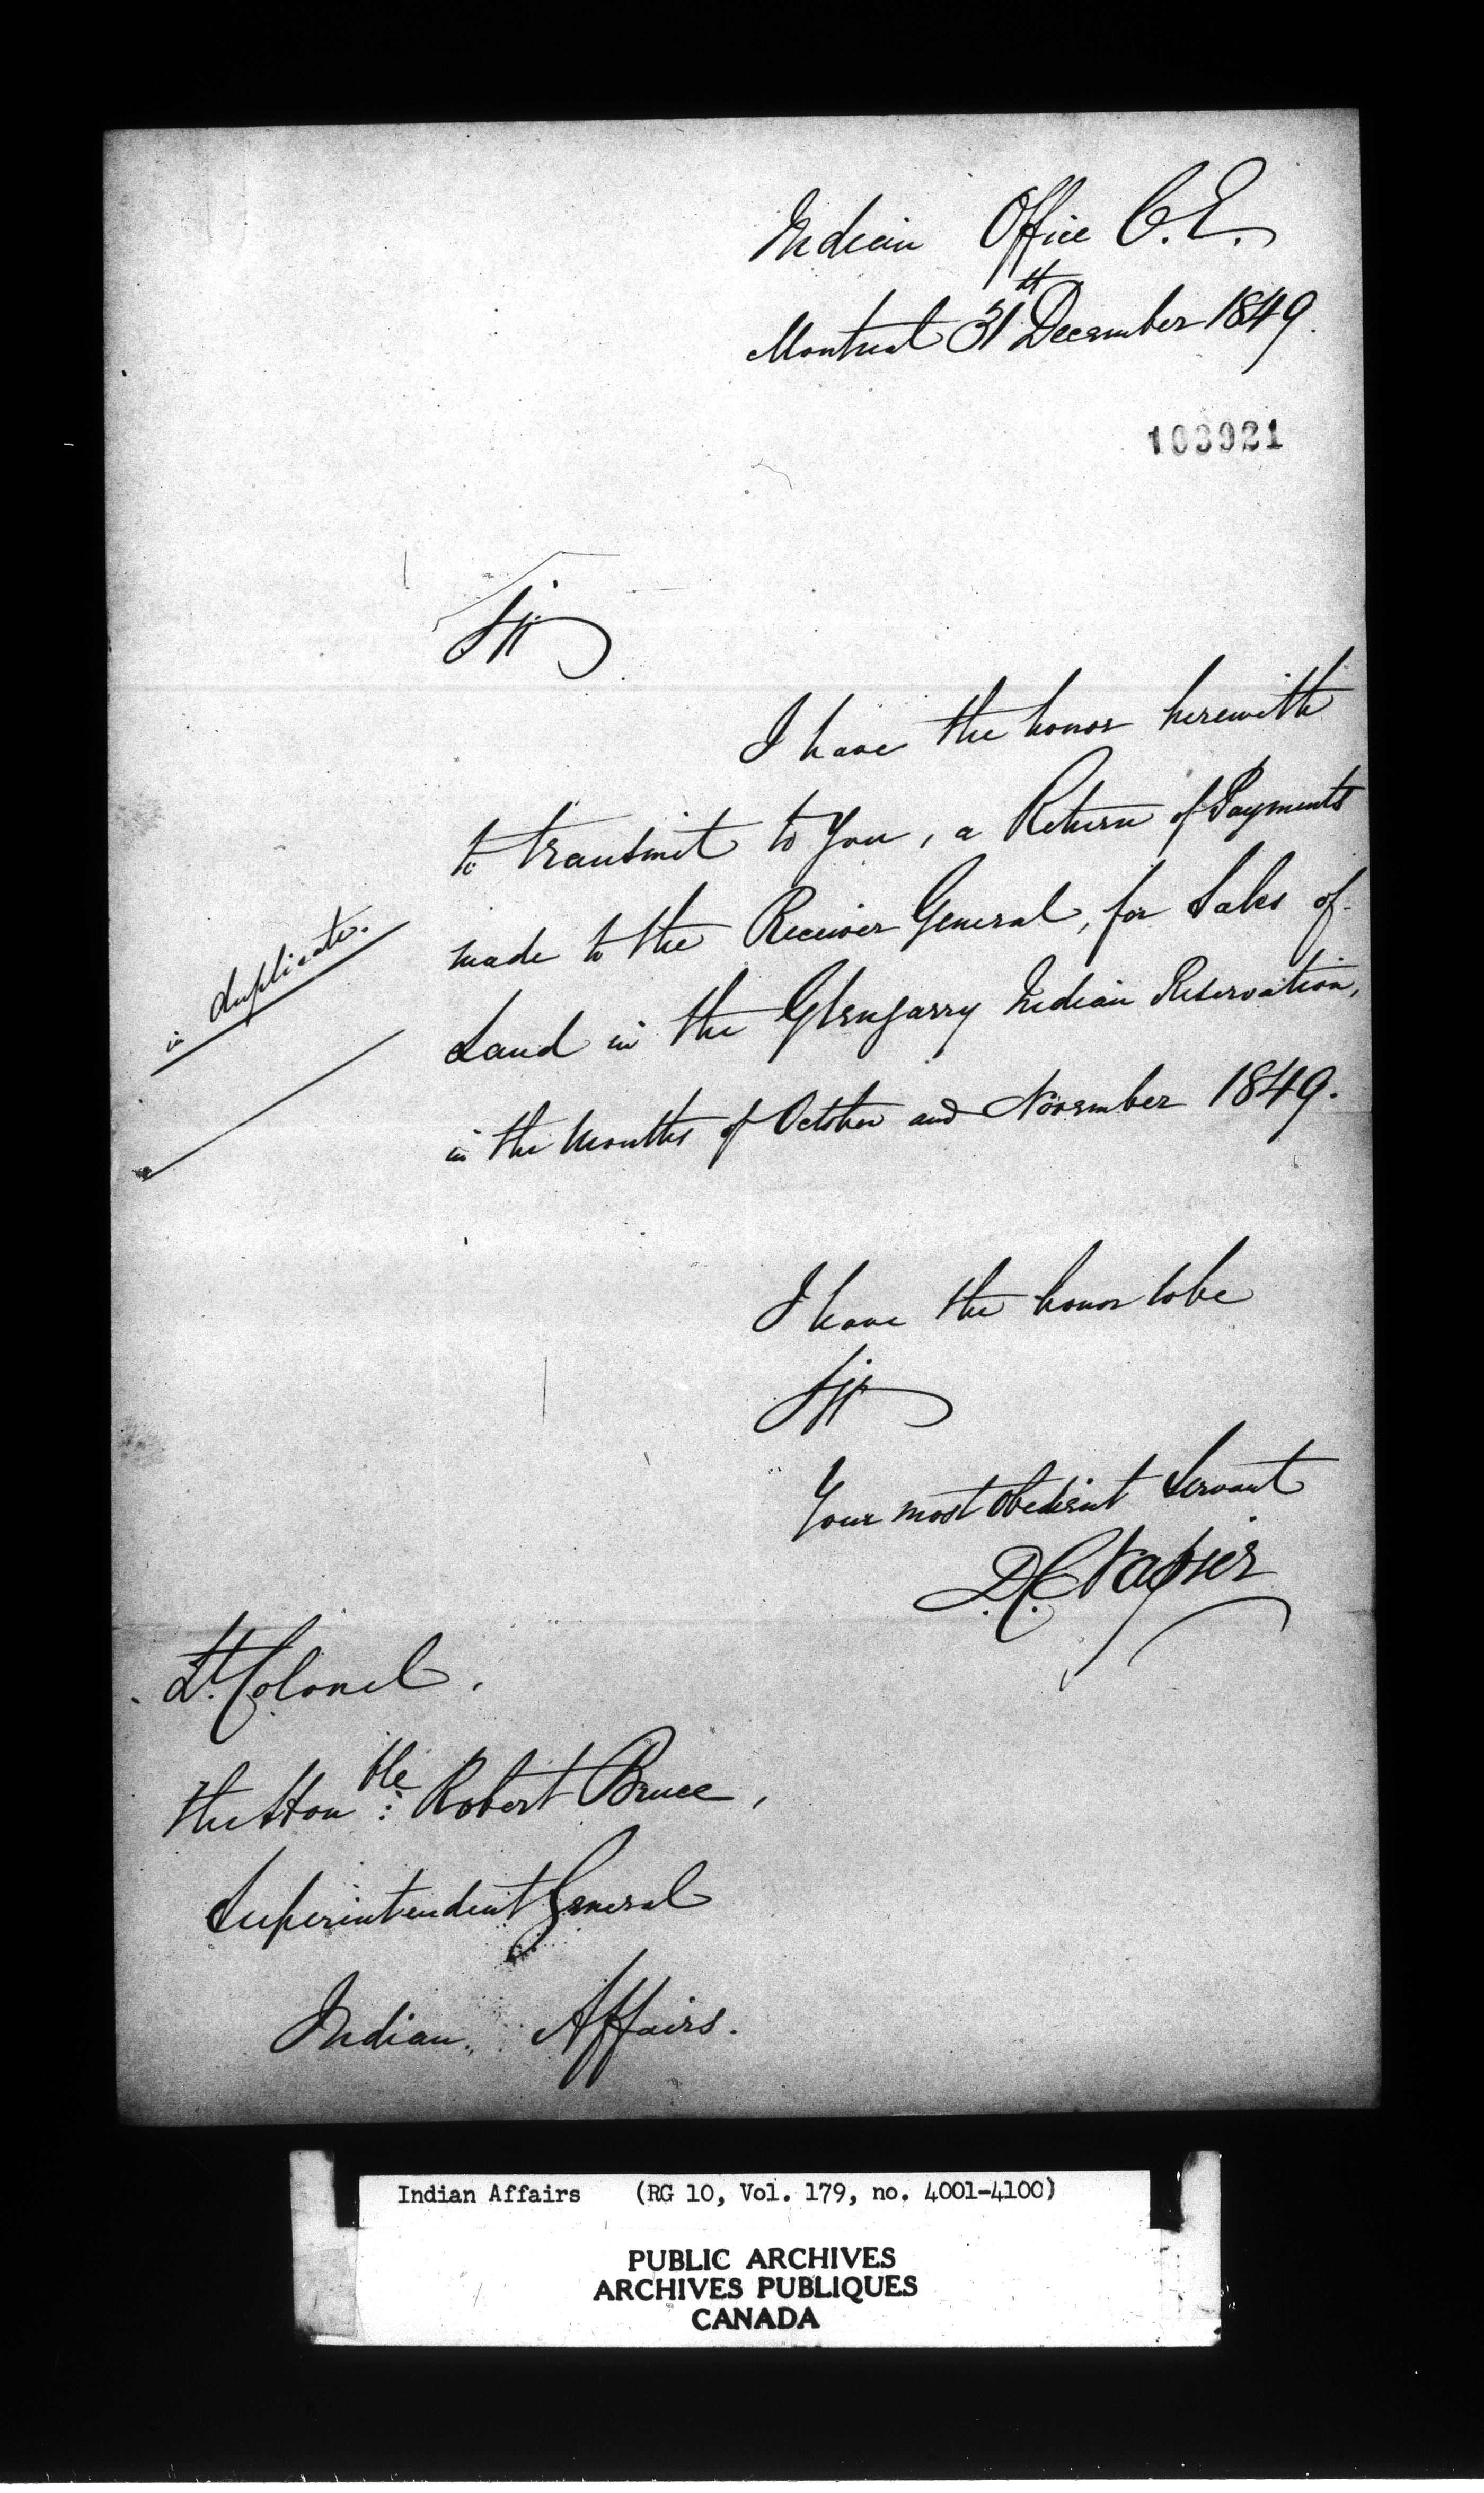 Indian Office C.E.
Montreal 31st December 1849.
103921
Sir
I have the honor herewith
to transmit to you, a Return of Payments
made to the Receiver General, for Sales of
Land in the Glengarry Indian Reservation,
in the Months of October and November 1849.
in duplicate.
I have the honor to be
Sir
Your most obedient Servant
D.C. Napier
Lt. Colonel.
The Honble: Robert Bruce,
Superintendent General
Indian Affairs.
Indian Affairs (RG 10, Vol. 179, no. 4001-4100)
PUBLIC ARCHIVES
ARCHIVES PUBLIQUES
CANADA